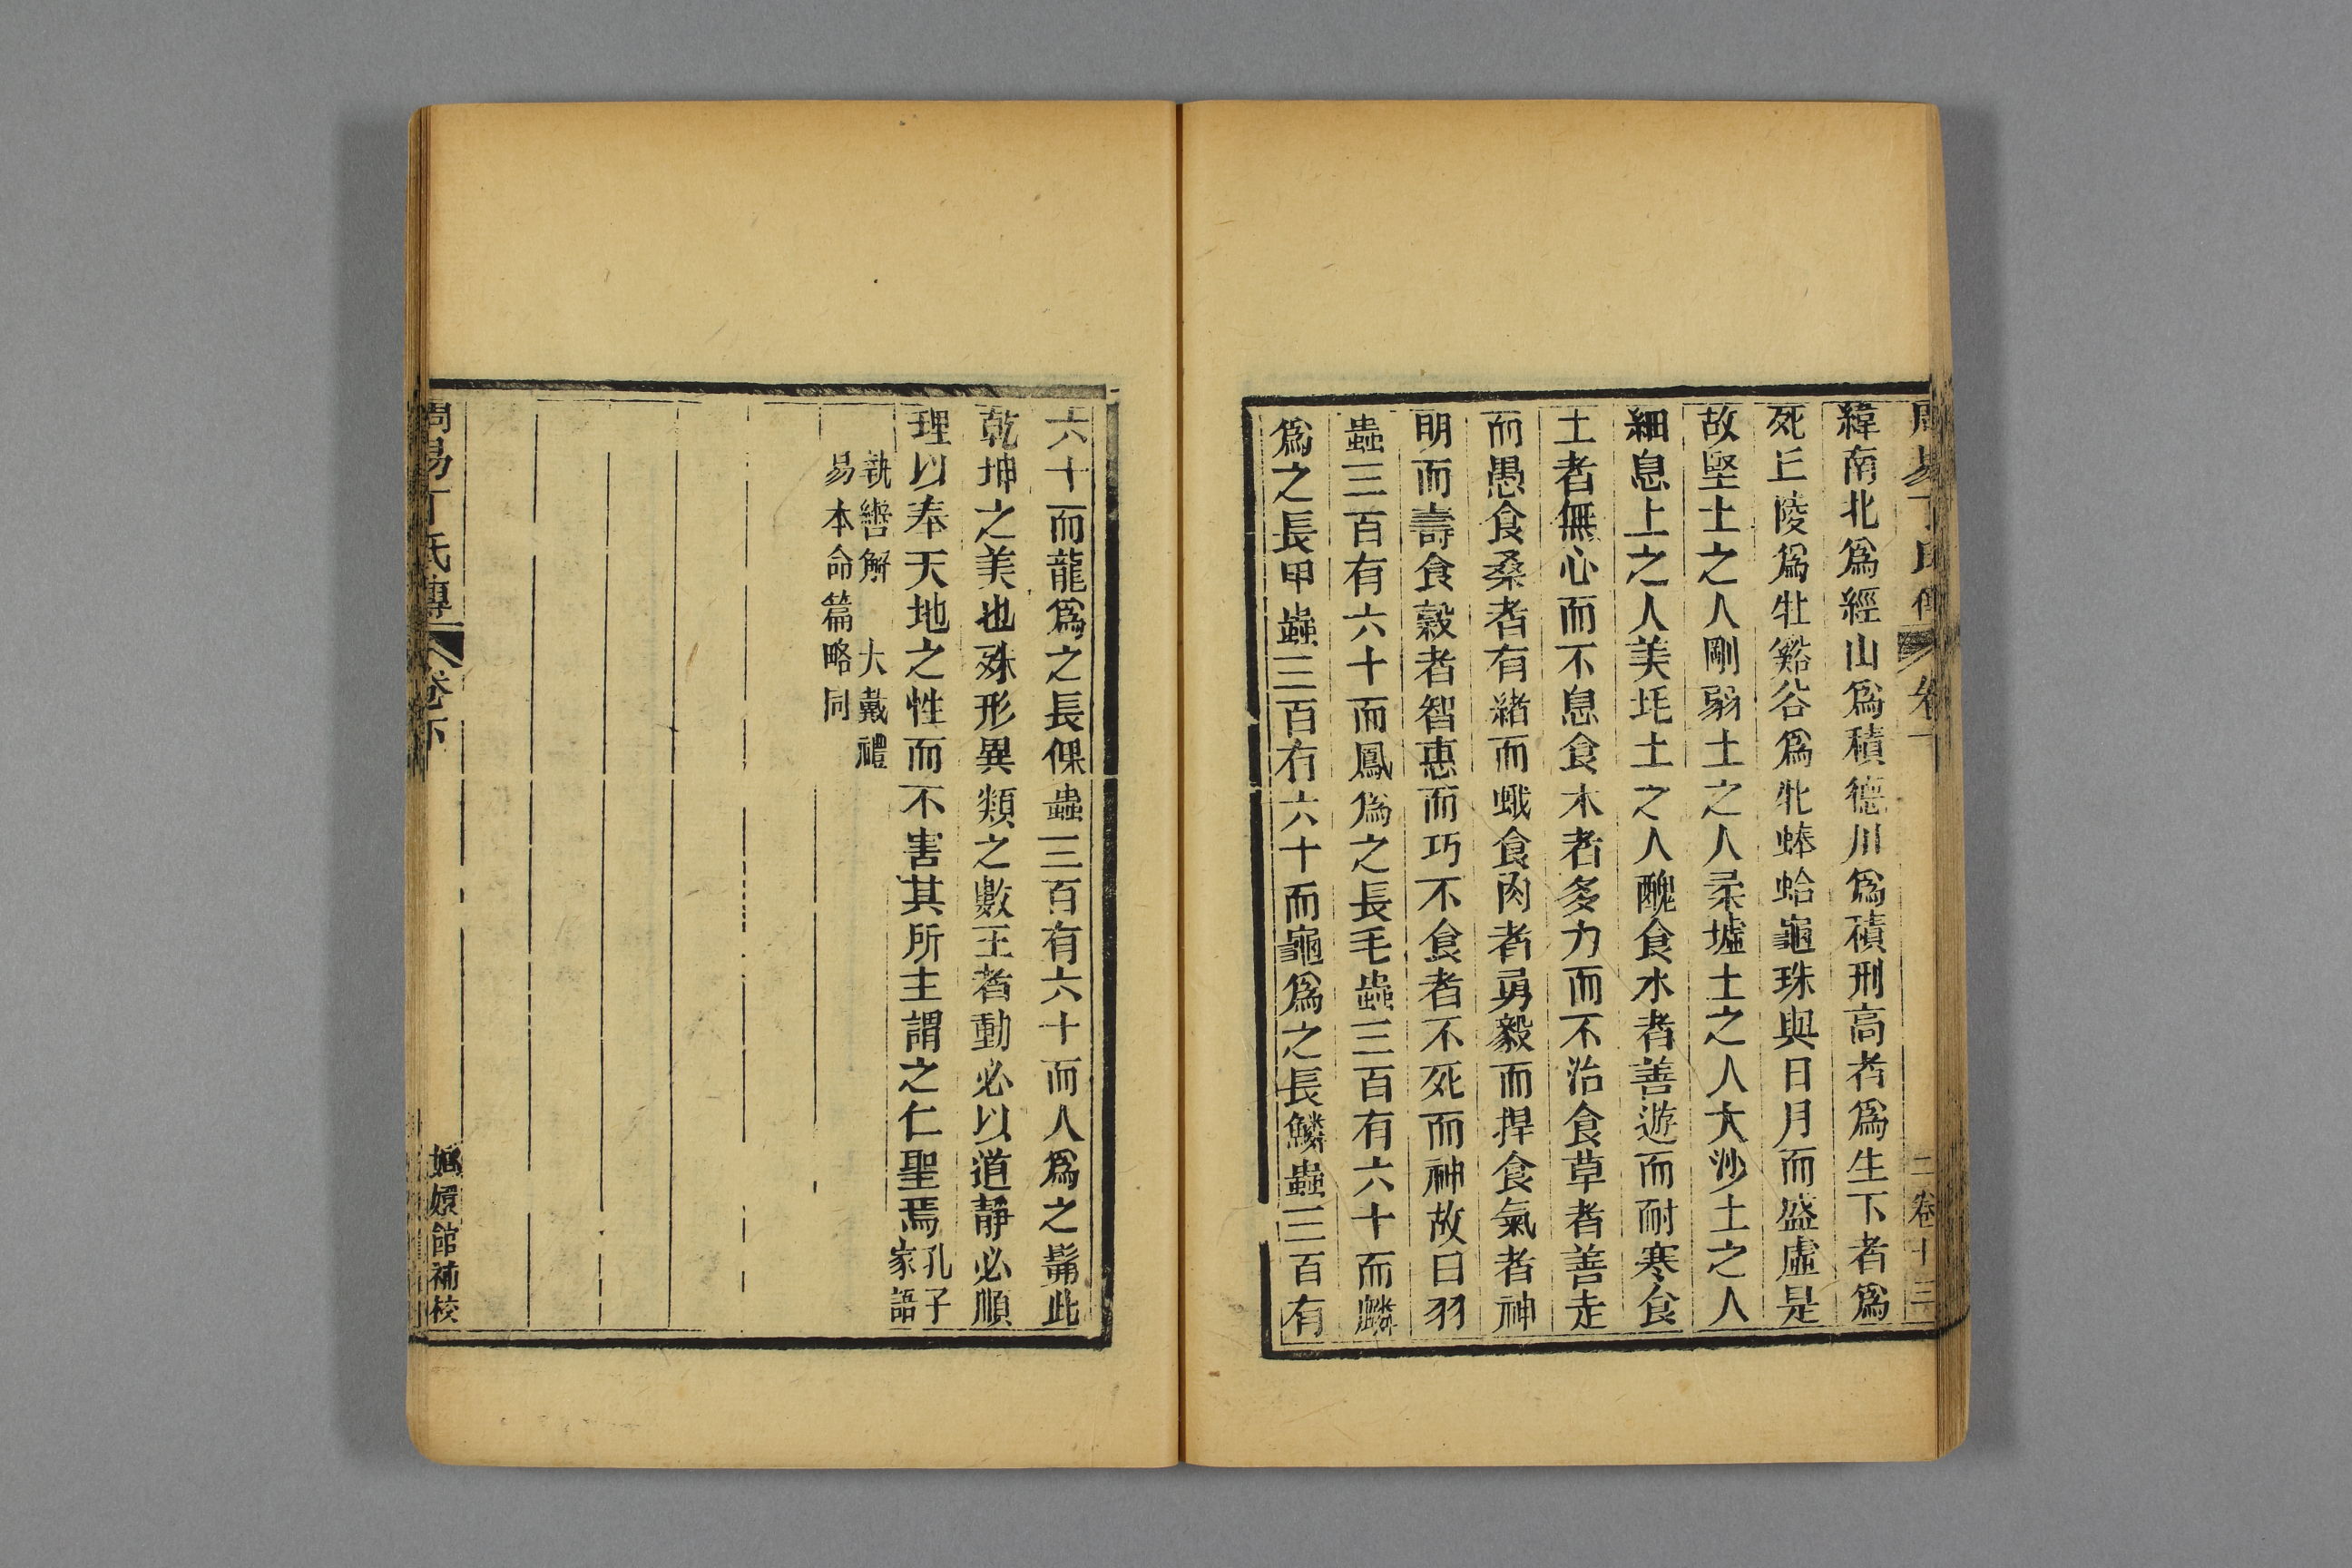 緯南北爲經山爲積德川爲積刑高者爲生下者爲
死丘陵爲牡谿谷爲牝蜯蛤龜珠與日月而盛虛是
故堅土之人剛弱土之人柔墟土之人大沙土之人
細息土之人美垞土之人醜食水者善遊而耐寒食
土者無心而不息食木者多力而不治食草者善走
而愚食桑者有緒而蛾食肉者勇毅而捍食氣者神
明而壽食穀者智惠而巧不食者不死而神故曰羽
蟲三百有六十而鳳爲之長毛蟲三百有六十而麟
爲之長甲蟲三百有六十而龜爲之長鱗蟲三百有
六十而龍爲之長倮蟲三百有六十而人爲之長此
乾坤之美也殊形異類之數王者動必以道靜必順
理以奉天地之性而不害其所主謂之仁聖焉
孔子
家語
執轡解 大戴禮
易本命篇略同
周易丁氏傳 卷下
嫏嬛館補校